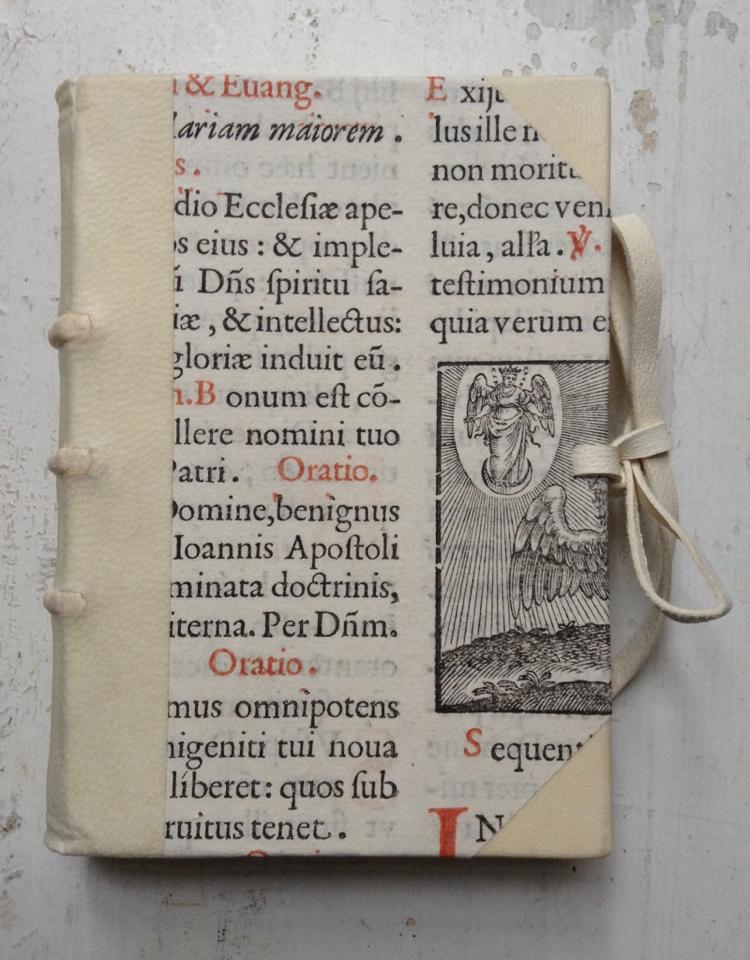 & Euang.
ariam maiorem .
s .
dio Eccleſiæ ape-
s eius : & imple-
Dñs ſpiritu ſa-
iæ , & intellectus:
gloriæ induit eũ .
B onum eſt cõ-
llere nomini tuo
Patri . Oratio.
Domine,benignus
Ioannis Apoſtoli
minata doctrinis,
iterna. Per Dñm.
Oratio .
mus omnipotens
nigeniti tui noua
liberet : quos ſub
ruitus tenet .
E xijt
lus ille n
non moritu
re,donec ven
luia , all'a . V.
teſtimonium
quia verum e
S equent
I N